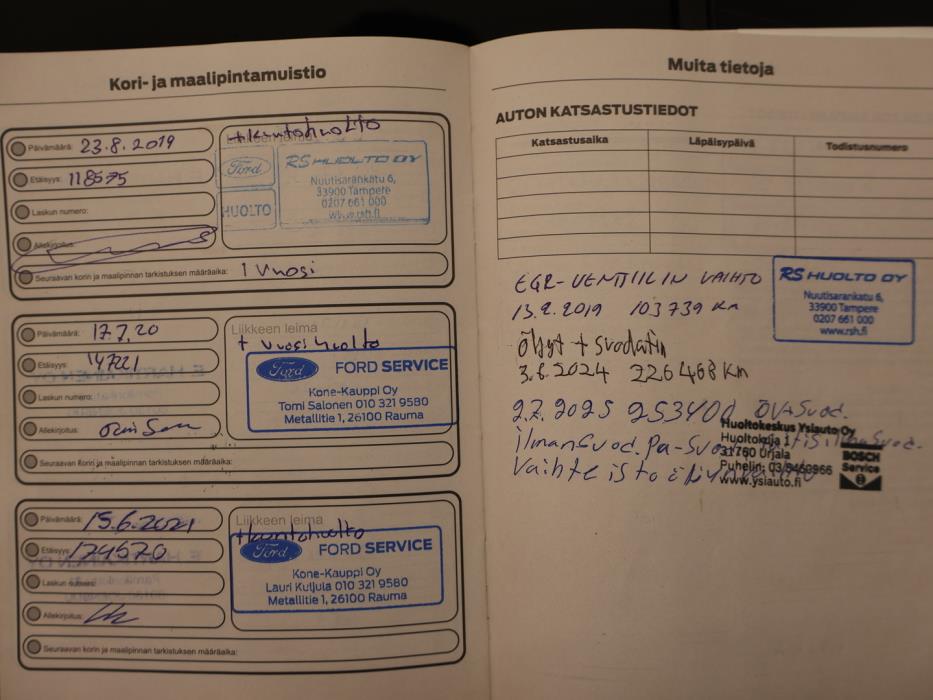 Kori- ja maalipintamuistio
Päivämäärä: 23.8.2019
Etäisyys: 118575
Laskun numero:
Allekirjoitus:
Seuraavan korin ja maalipinnan tarkistuksen määräaika: 1 vuosi
+kuntohuolto
Ford
HUOLTO
RS HUOLTO OY
Nuutisarankatu 6,
33900 Tampere
0207 661 000
www.rsh.fi
Päivämäärä: 17.7.20
Etäisyys: 147221
Laskun numero:
Allekirjoitus:
Seuraavan korin ja maalipinnan tarkistuksen määräaika:
Liikkeen leima
+ vuosihuolto
Ford FORD SERVICE
Kone-Kauppi Oy
Tomi Salonen 010 321 9580
Metallitie 1, 26100 Rauma
Päivämäärä: 15.6.2021
Etäisyys: 174570
Laskun numero:
Allekirjoitus:
Seuraavan korin ja maalipinnan tarkistuksen määräaika:
Liikkeen leima
+kuntohuolto
Ford FORD SERVICE
Kone-Kauppi Oy
Lauri Kutjula 010 321 9580
Metallitie 1, 26100 Rauma
Muita tietoja
AUTON KATSASTUSTIEDOT
Katsastusaika Läpäisypäivä Todistusnumero
EGR-VENTIILIN VAIHTO
13.2.2019 103739 KM
RS HUOLTO OY
Nuutisarankatu 6,
33900 Tampere
0207 661 000
www.rsh.fi
Öljyt + suodatin
3.6.2024 226408 KM
2.7.2025 253400 ÖV+Suod.
ilmanSuod. Pa-Suod.
Vaihteisto
Huoltokeskus Ysiauto Oy
Huoltokuja 1
31760 Urjala
Puhelin: 03/5460966
www.ysiauto.fi
BOSCH
Service